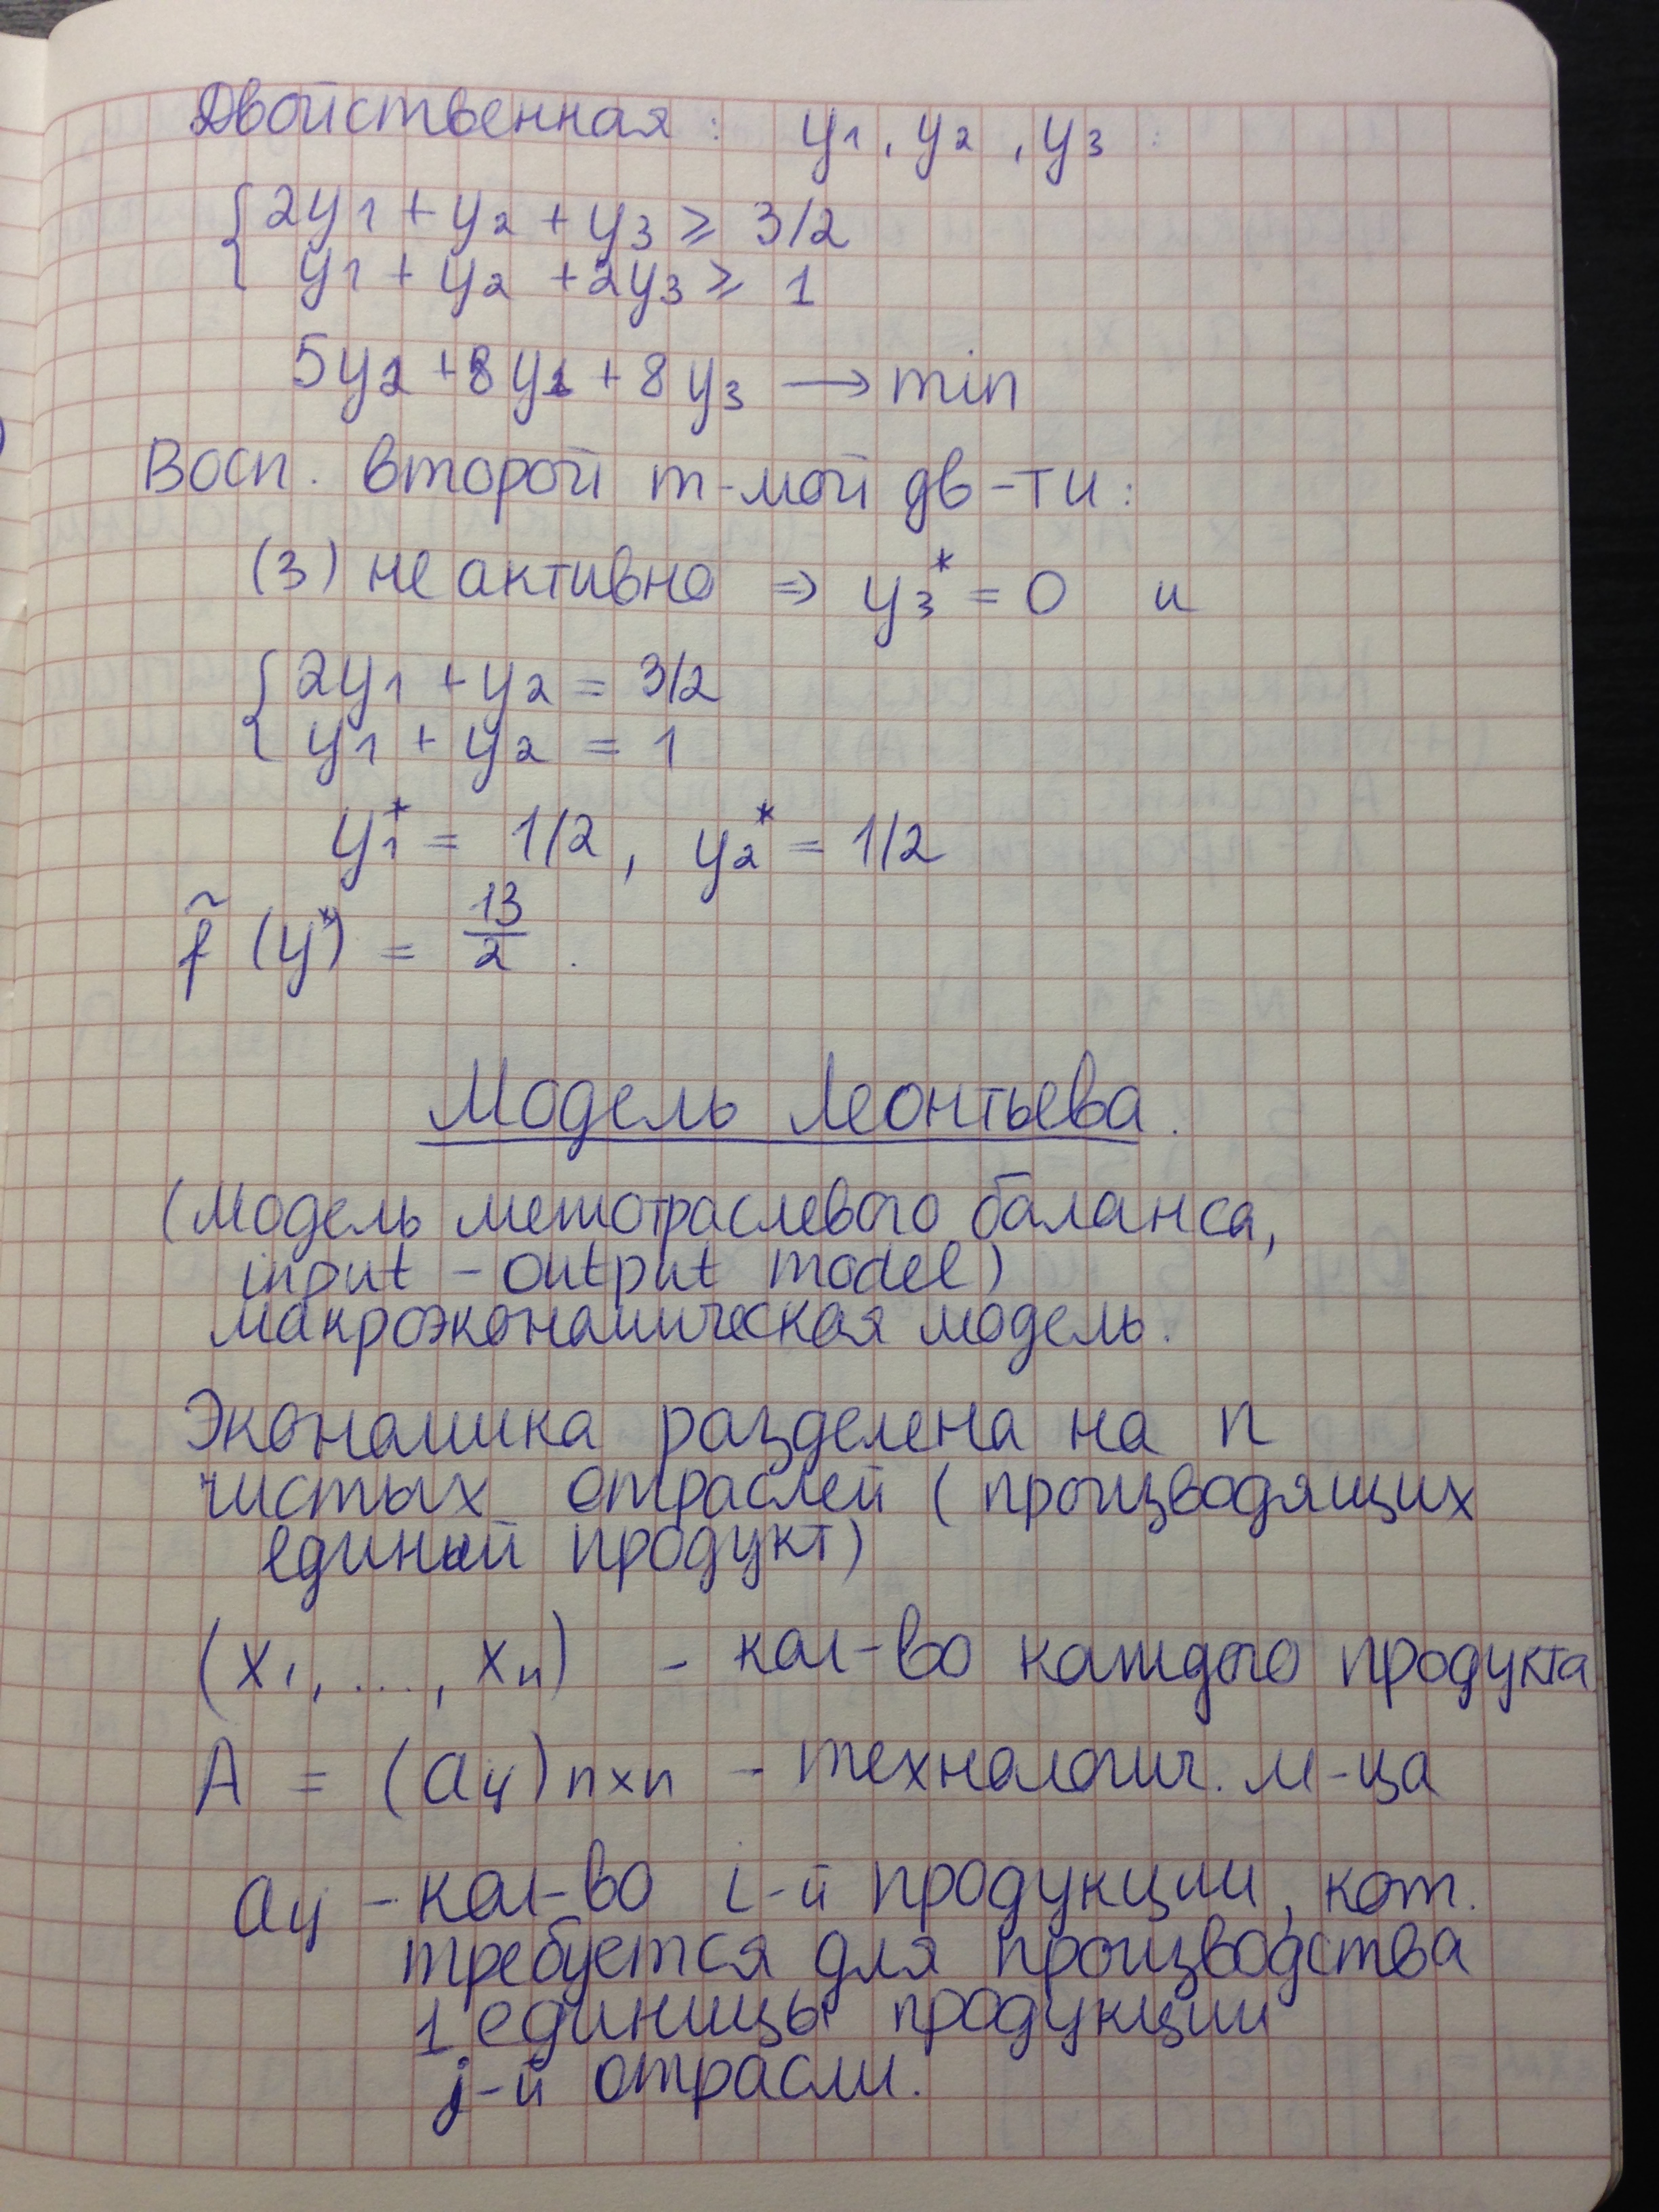 Двойственная: y₁, y₂, y₃:
{ 2y₁ + y₂ + y₃ ≥ 3/2
y₁ + y₂ + 2y₃ ≥ 1
5y₂ + 8y₁ + 8y₃ → min
Восп. второй т-мой дв-ти:
(3) не активно ⇒ y₃* = 0 и
{ 2y₁ + y₂ = 3/2
y₁ + y₂ = 1
y₁* = 1/2, y₂* = 1/2
f̃(y*) = 13/2.
Модель Леонтьева.
(Модель межотраслевого баланса,
input - output model)
макроэкономическая модель.
Экономика разделена на n
чистых отраслей (производящих
единый продукт)
(x₁, ..., xₙ) - кол-во каждого продукта
A = (aᵢⱼ)n×n - технологич. м-ца
aᵢⱼ - кол-во i-й продукции, кот.
требуется для производства
1 единицы продукции
j-й отрасли.